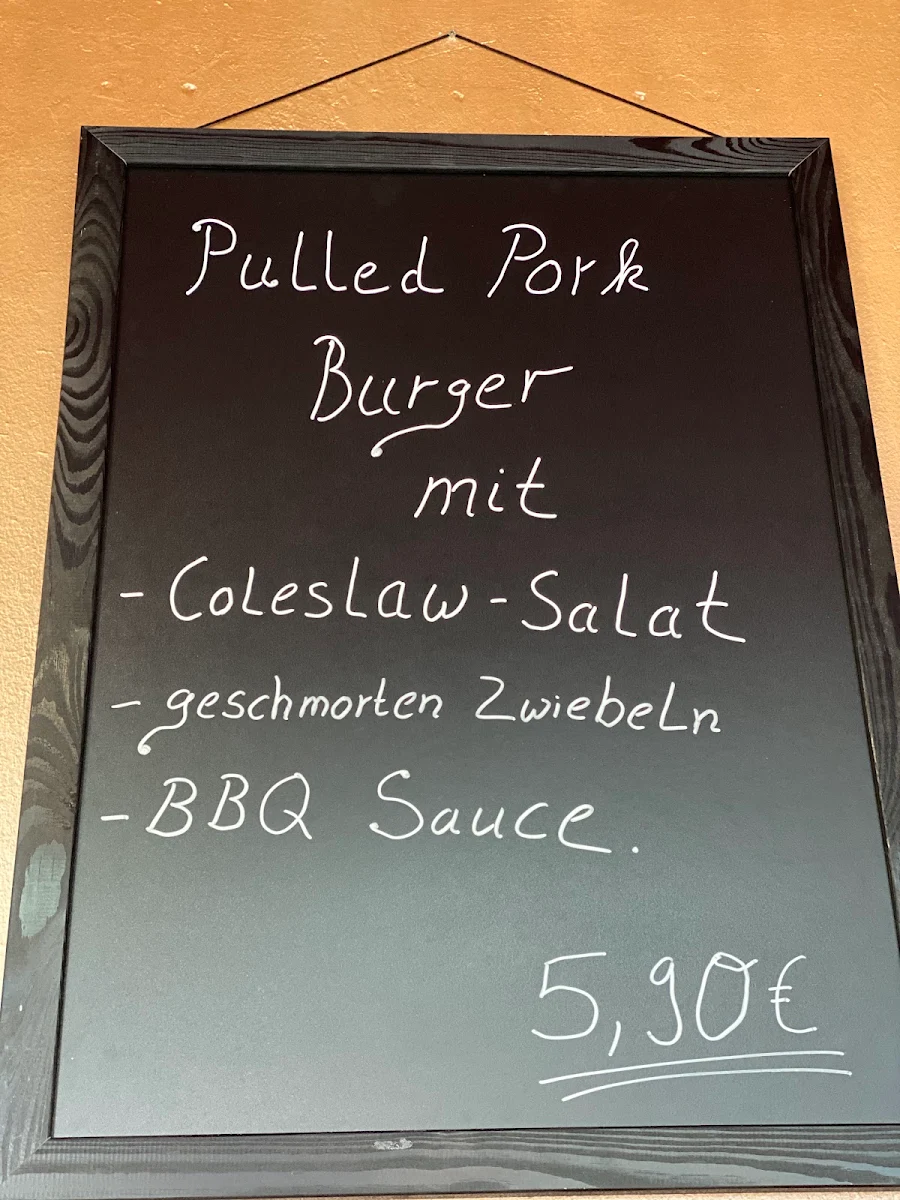 Pulled Pork
Burger
mit
- Coleslaw - Salat
- geschmorten Zwiebeln
- BBQ Sauce.
5,90€